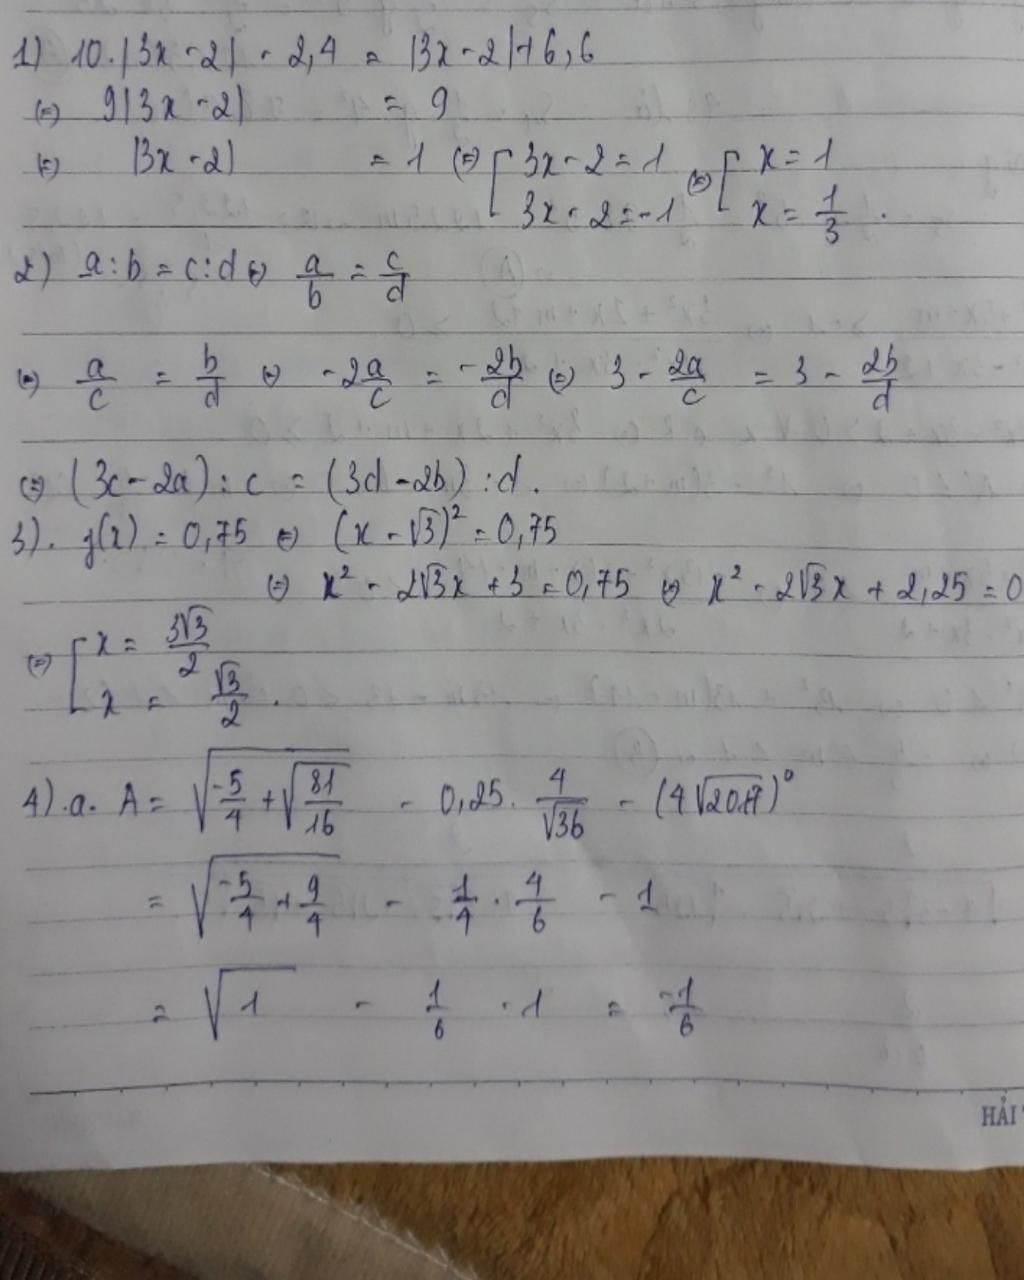 1) 10.|3x - 2| - 2,4 = |3x - 2| + 6,6
(=) 9|3x - 2| = 9
(=) |3x - 2| = 1 (=) [ 3x - 2 = 1 (=) [ x = 1
3x - 2 = -1 x = 1/3 .
2) a : b = c : d (=) a/b = c/d
(=) a/c = b/d (=) -2a/c = -2b/d (=) 3 - 2a/c = 3 - 2b/d
(=) (3c - 2a) : c = (3d - 2b) : d.
3). f(x) = 0,75 (=) (x - √3)² = 0,75
(=) x² - 2√3x + 3 = 0,75 (=) x² - 2√3x + 2,25 = 0
(=) [ x = 3√3/2
x = √3/2 .
4). a. A = √(-5/4 + √(81/16)) - 0,25. 4/√36 - (4√2017)⁰
= √(-5/4 + 9/4) - 1/4 . 4/6 - 1
= √1 - 1/6 - 1 = -1/6
HẢI